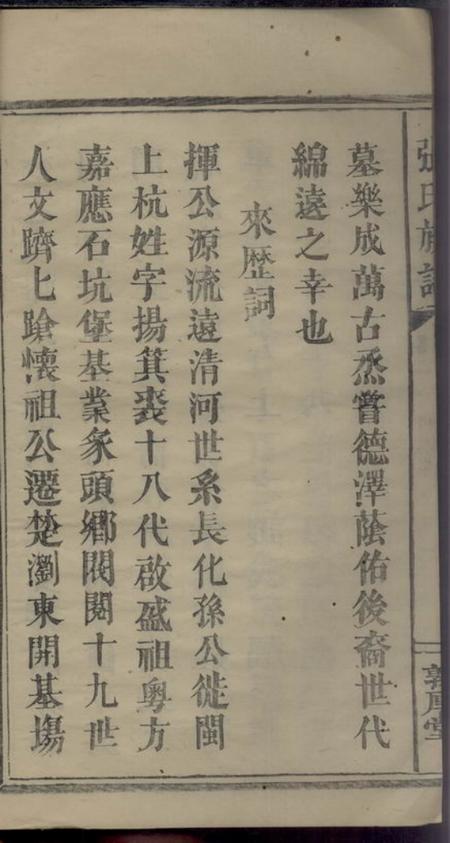 張氏族譜
墓樂成萬古烝嘗德澤蔭佑後裔世代
綿遠之幸也
來歷詞
揮公源流遠清河世系長化孫公徙閩
上杭姓字揚箕裘十八代啟盛祖粵方
嘉應石坑堡基業象頭鄉閥閱十九世
人文躋七蹌懷祖公遷楚瀏東開基塲
敦厚堂